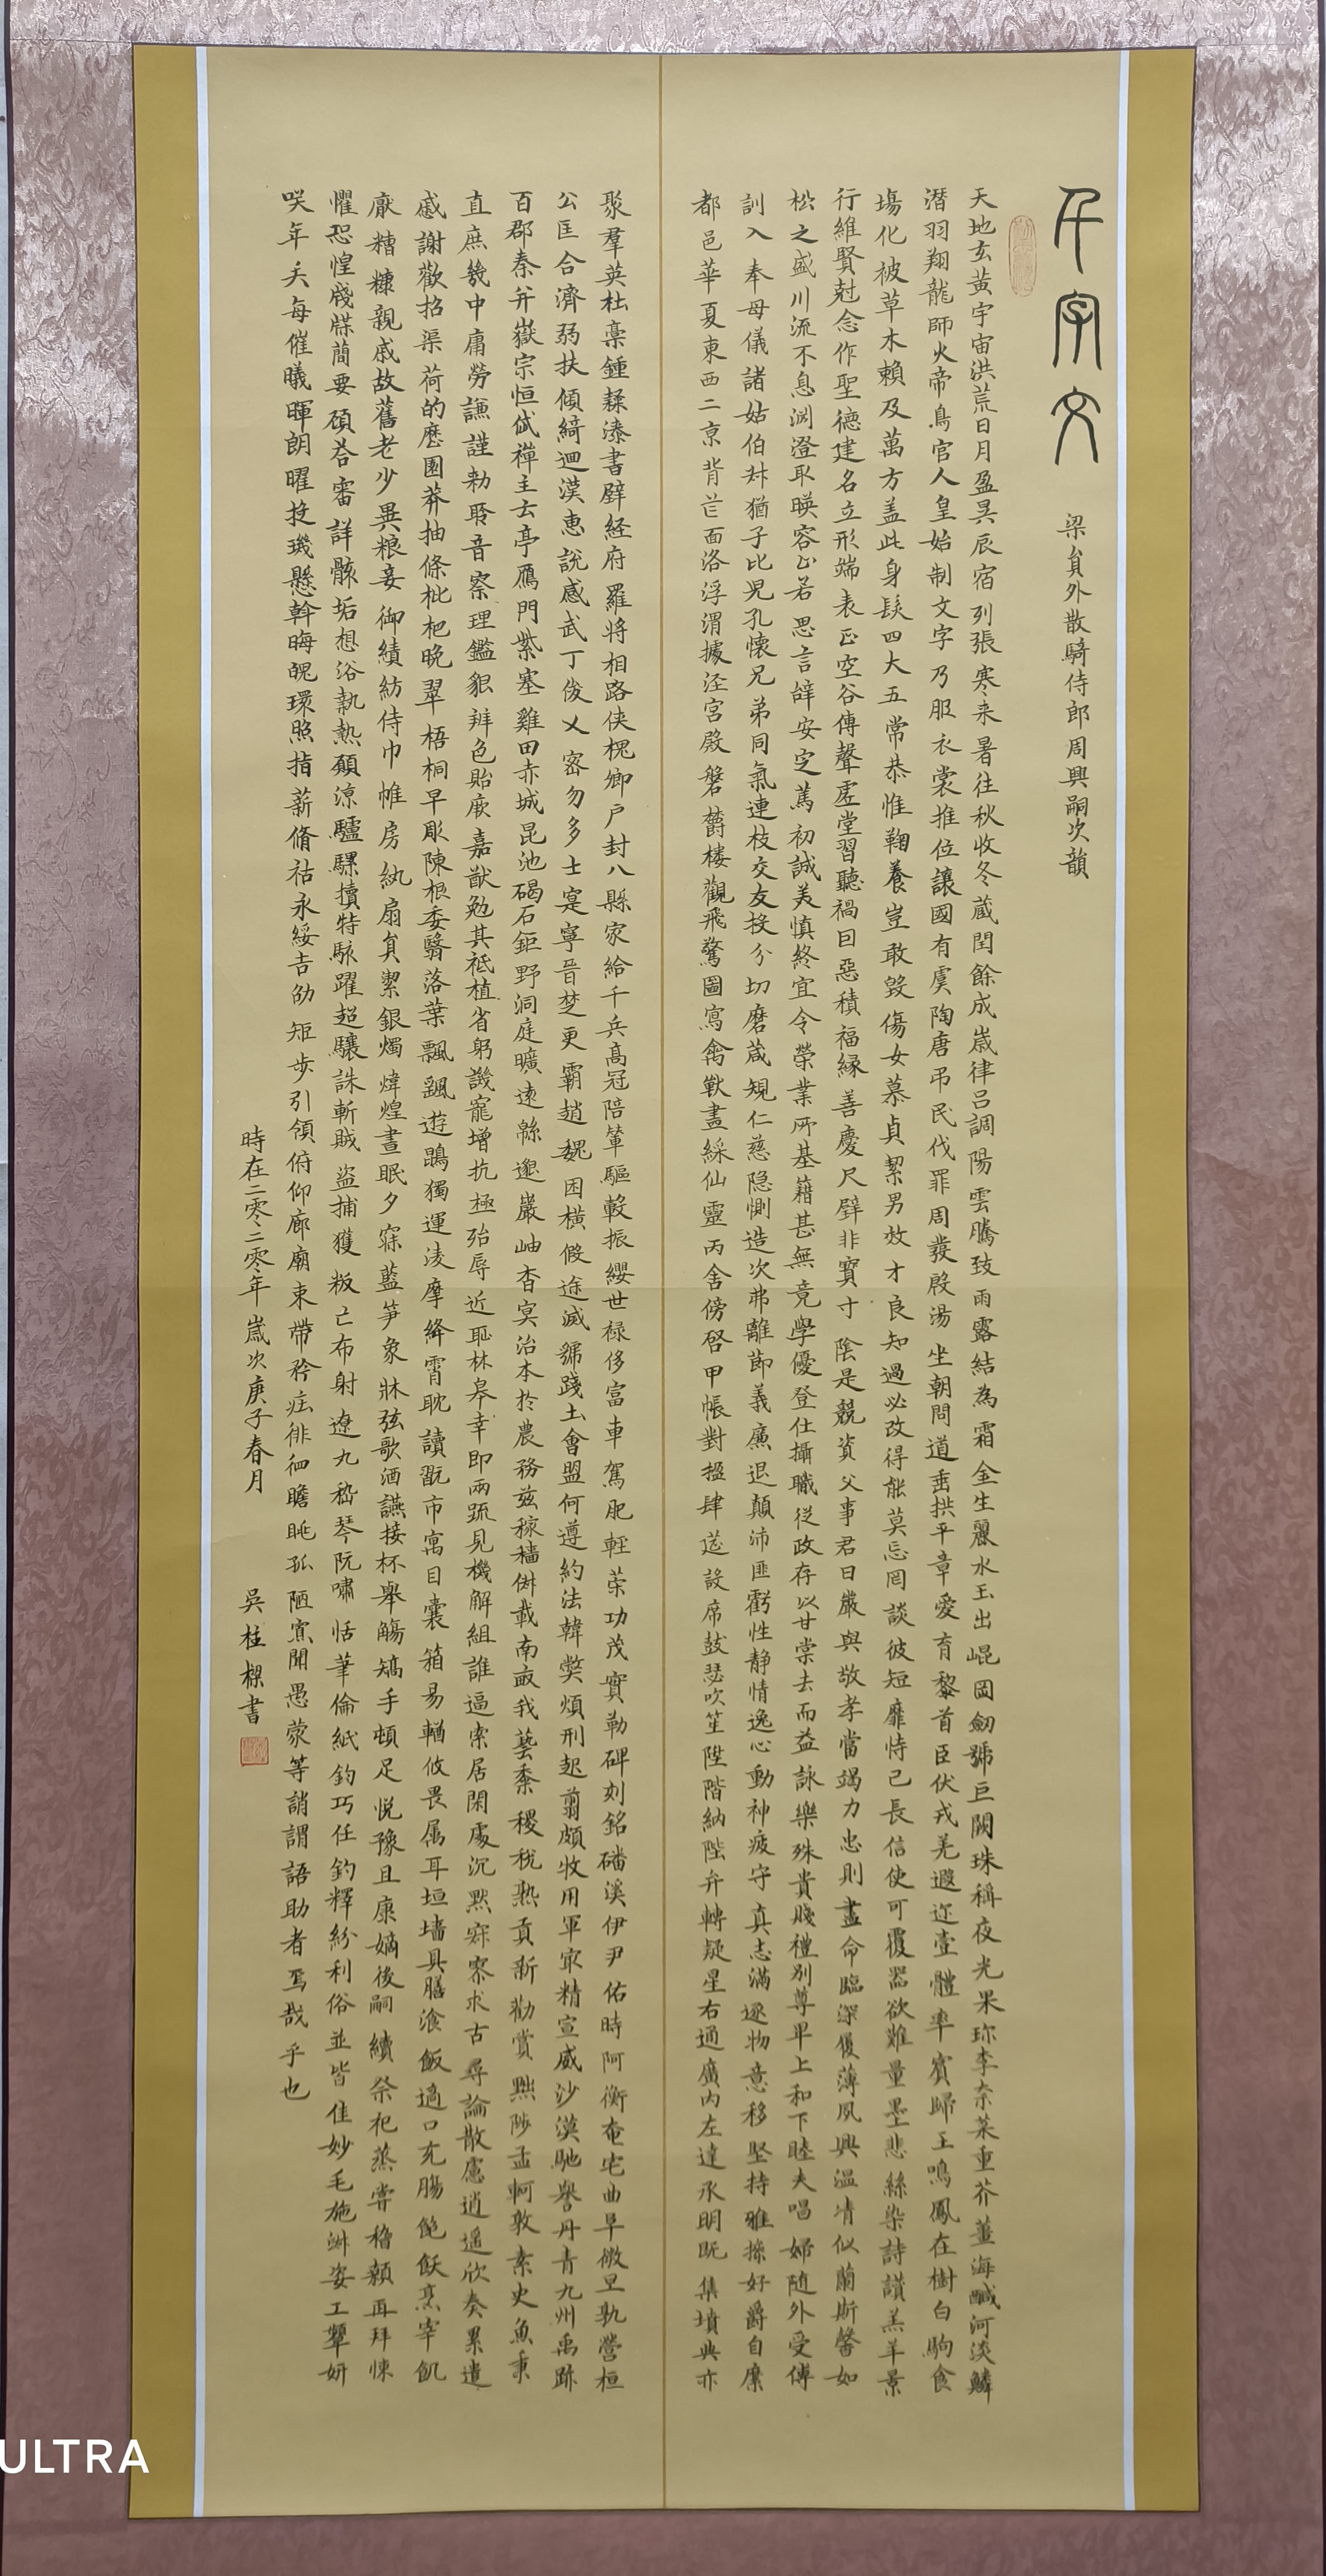 千字文
梁員外散騎侍郎周興嗣次韻
天地玄黃宇宙洪荒日月盈昃辰宿列張寒来暑往秋收冬蔵閏餘成嵗律呂調陽雲騰致雨露結為霜金生麗水玉出崐岡劒號巨闕珠稱夜光果珎李柰菜重芥薑海醎河淡鱗
潛羽翔龍師火帝鳥官人皇始制文字乃服衣裳推位讓國有虞陶唐弔民伐罪周發殷湯坐朝問道垂拱平章愛育黎首臣伏戎羌遐迩壹體率賓歸王鳴鳳在樹白駒食
場化被草木賴及萬方盖此身髮四大五常恭惟鞠養豈敢毀傷女慕貞絜男效才良知過必改得能莫忘罔談彼短靡恃己長信使可覆器欲難量墨悲絲染詩讚羔羊景
行維賢尅念作聖德建名立形端表正空谷傳聲虛堂習聽禍因惡積福緣善慶尺璧非寶寸陰是競資父事君曰嚴與敬孝當竭力忠則盡命臨深履薄夙興温凊似蘭斯馨如
松之盛川流不息淵澄取暎容止若思言辭安定篤初誠美慎終宜令榮業所基籍甚無竟學優登仕攝職從政存以甘棠去而益詠樂殊貴賤禮別尊卑上和下睦夫唱婦隨外受傅
訓入奉母儀諸姑伯叔猶子比兒孔懷兄弟同氣連枝交友投分切磨箴規仁慈隐惻造次弗離節義廉退顛沛匪虧性静情逸心動神疲守真志滿逐物意移堅持雅操好爵自縻
都邑華夏東西二京背芒面洛浮渭據涇宮殿磐欝楼觀飛驚圖寫禽獸畫綵仙靈丙舍傍啓甲帳對楹肆筵設席鼓瑟吹笙陞階納陛弁轉疑星右通廣內左達承明既集墳典亦
聚羣英杜稾鍾隸漆書壁経府羅將相路俠槐卿戶封八縣家給千兵高冠陪輦驅轂振纓世禄侈富車駕肥輕策功茂實勒碑刻銘磻溪伊尹佐時阿衡奄宅曲阜微旦孰營桓
公匡合濟弱扶傾綺迴漢惠說感武丁俊乂密勿多士寔寧晉楚更霸趙魏困橫假途滅虢踐土會盟何遵約法韓弊煩刑起翦頗牧用軍最精宣威沙漠馳譽丹青九州禹跡
百郡秦并嶽宗恒岱禪主云亭鴈門紫塞雞田赤城昆池碣石鉅野洞庭曠遠緜邈巖岫杳冥治本於農務兹稼穡俶載南畝我藝黍稷稅熟貢新勸賞黜陟孟軻敦素史魚秉
直庶幾中庸勞謙謹勑聆音察理鑑貌辨色貽厥嘉猷勉其祗植省躬譏寵增抗極殆辱近恥林皋幸即兩疏見機解組誰逼索居閑處沉默寂寥求古尋論散慮逍遥欣奏累遣
慼謝歡招渠荷的歷園莽抽條枇杷晚翠梧桐早彫陳根委翳落葉飄颻遊鵾獨運淩摩絳霄耽讀翫市寓目囊箱易輶攸畏属耳垣墻具膳飡飯適口充腸飽飫烹宰飢
厭糟糠親戚故舊老少異粮妾御績紡侍巾帷房紈扇員潔銀燭煒煌晝眠夕寐藍笋象牀弦歌酒讌接杯舉觴矯手頓足悅豫且康嫡後嗣續祭祀蒸嘗稽顙再拜悚
懼恐惶牋牒簡要顧答審詳骸垢想浴執熱願涼驢騾犢特駭躍超驤誅斬賊盜捕獲叛亡布射遼丸嵇琴阮嘯恬筆倫紙鈞巧任釣釋紛利俗並皆佳妙毛施淑姿工顰妍
咲年矢每催曦暉朗曜旋璣懸斡晦魄環照指薪脩祜永綏吉劭矩步引領俯仰廊廟束帶矜莊徘徊瞻眺孤陋寡聞愚蒙等誚謂語助者焉哉乎也
時在二零二零年嵗次庚子春月 吳柱樑書
ULTRA